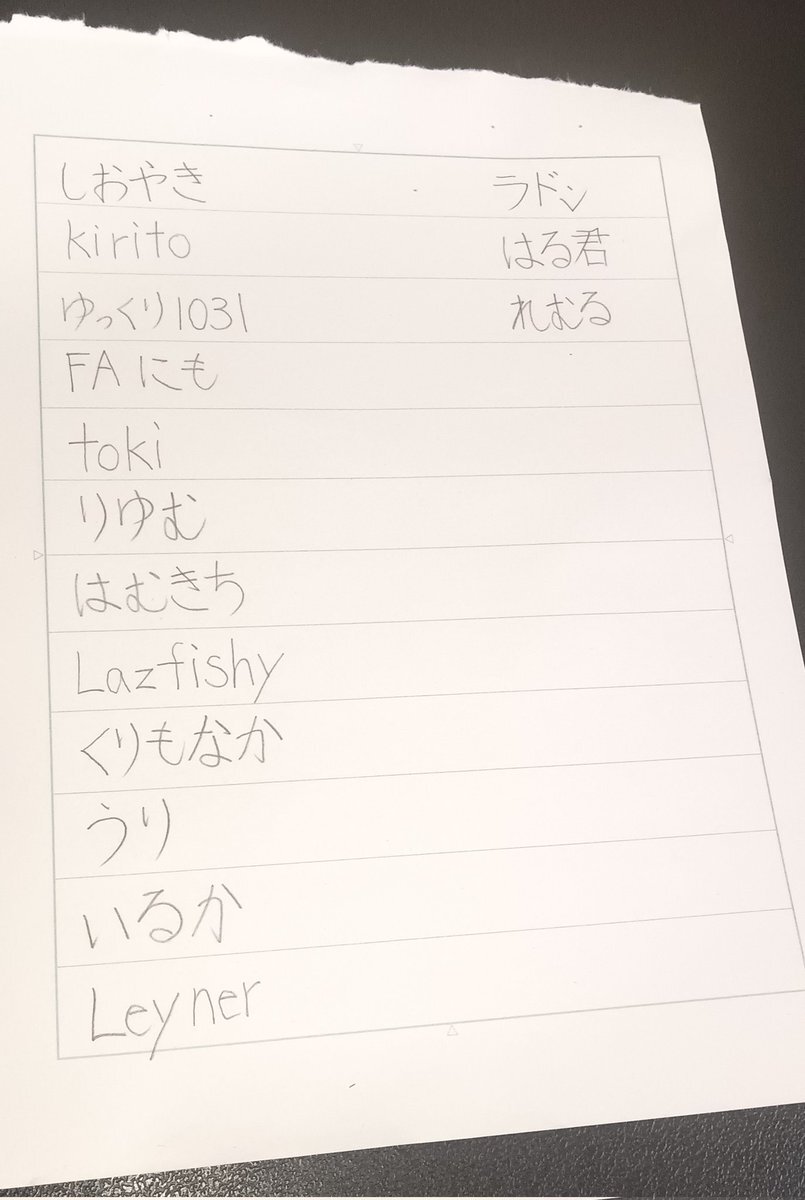 しおやき
kirito
ゆっくり1031
FAにも
toki
りゆむ
はむきち
Lazfishy
くりもなか
うり
いるか
Leyner
ラドン
はる君
れむる